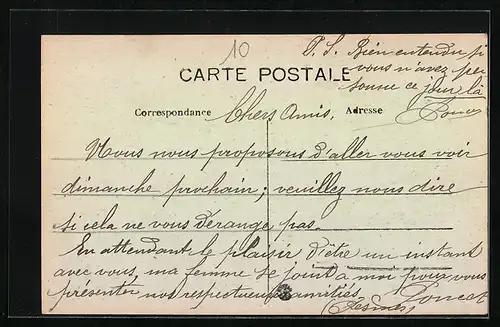 10
P.S. Bien entendu si
vous n'avez per
sonne ce jour là
CARTE POSTALE
Poncet
Correspondance Chers Amis, Adresse
Nous nous proposons d'aller vous voir
dimanche prochain; veuillez nous dire
si cela ne vous dérange pas.
En attendant le plaisir d'être un instant
avec vous, ma femme se joint a moi pour vous
présenter nos respectueuses amitiés. Poncet